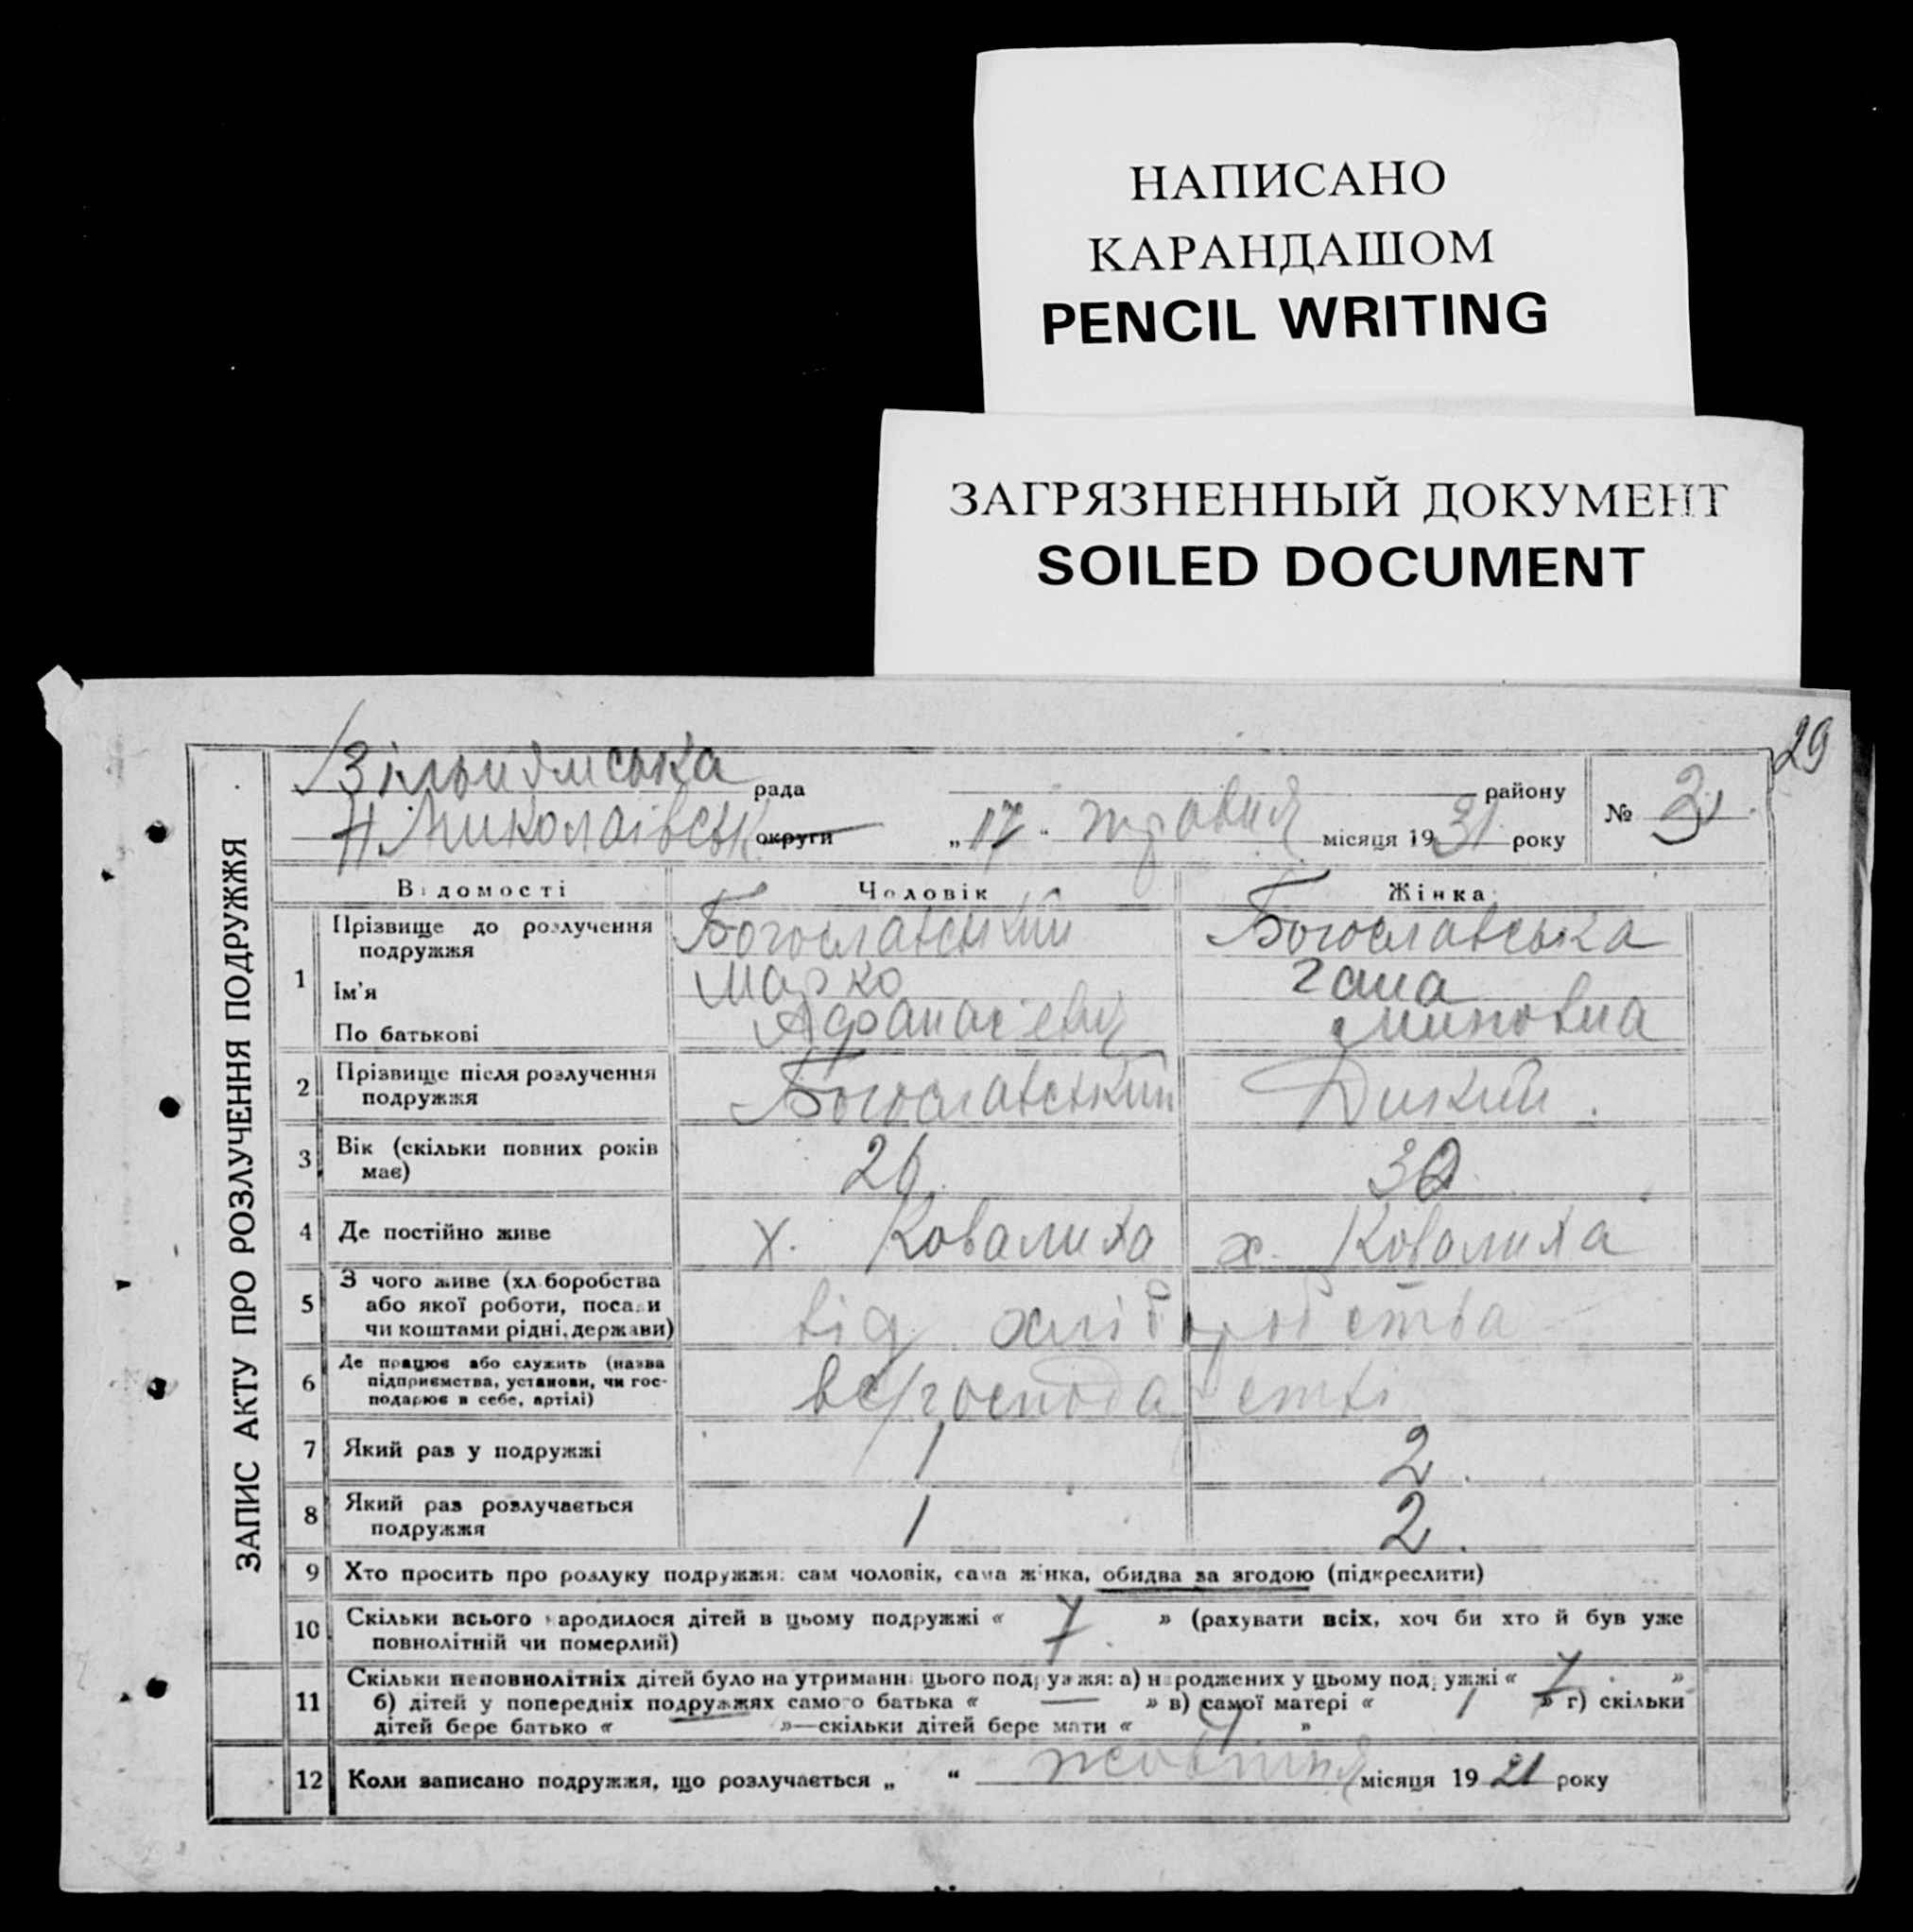 НАПИСАНО
КАРАНДАШОМ
PENCIL WRITING
ЗАГРЯЗНЕННЫЙ ДОКУМЕНТ
SOILED DOCUMENT
29
ЗАПИС АКТУ ПРО РОЗЛУЧЕННЯ ПОДРУЖЖЯ
рада району
Н Миколаівськ округи „17“ травня місяця 1931 року
№ 31
Відомості Чоловік Жінка
1 Прізвище до розлучення подружжя Богославський Богославська
Ім'я Марко Гана
По батькові Афанасієвич
2 Прізвище після розлучення подружжя Богославський Дикий
3 Вік (скільки повних років має) 26 30
4 Де постійно живе х. Ковалиха х. Ковалиха
5 З чого живе (хліборобства
або якої роботи, посади
чи коштами рідні, держави) від хліборобства
6 Де працює або служить (назва
підприємства, установи, чи гос-
подарює в себе, артілі) в с/господарстві
7 Який раз у подружжі 1 2
8 Який раз розлучається
подружжя 1 2
9 Хто просить про розлуку подружжя: сам чоловік, сама жінка, обидва за згодою (підкреслити)
10 Скільки всього народилося дітей в цьому подружжі « 7 » (рахувати всіх, хоч би хто й був уже
повнолітній чи померлий)
11 Скільки неповнолітніх дітей було на утриманні цього подружжя: а) народжених у цьому подружжі « 7 »
б) дітей у попередніх подружжях самого батька « — » в) самої матері « 1 » г) скільки
дітей бере батько « »—скільки дітей бере мати « »
12 Коли записано подружжя, що розлучається „ “ жовтня місяця 1921 року